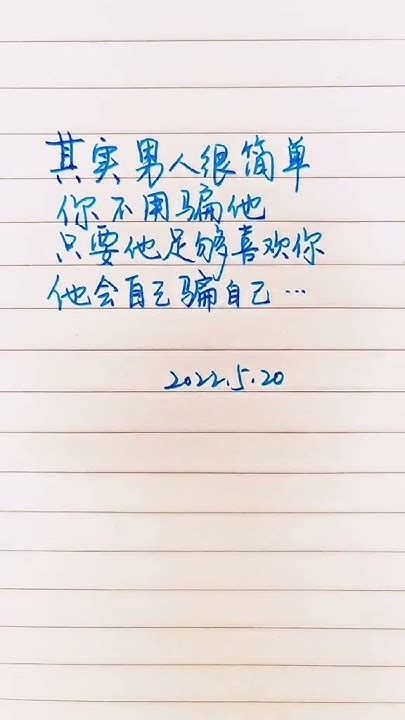 其实男人很简单
你不用骗他
只要他足够喜欢你
他会自己骗自己…
2022.5.20